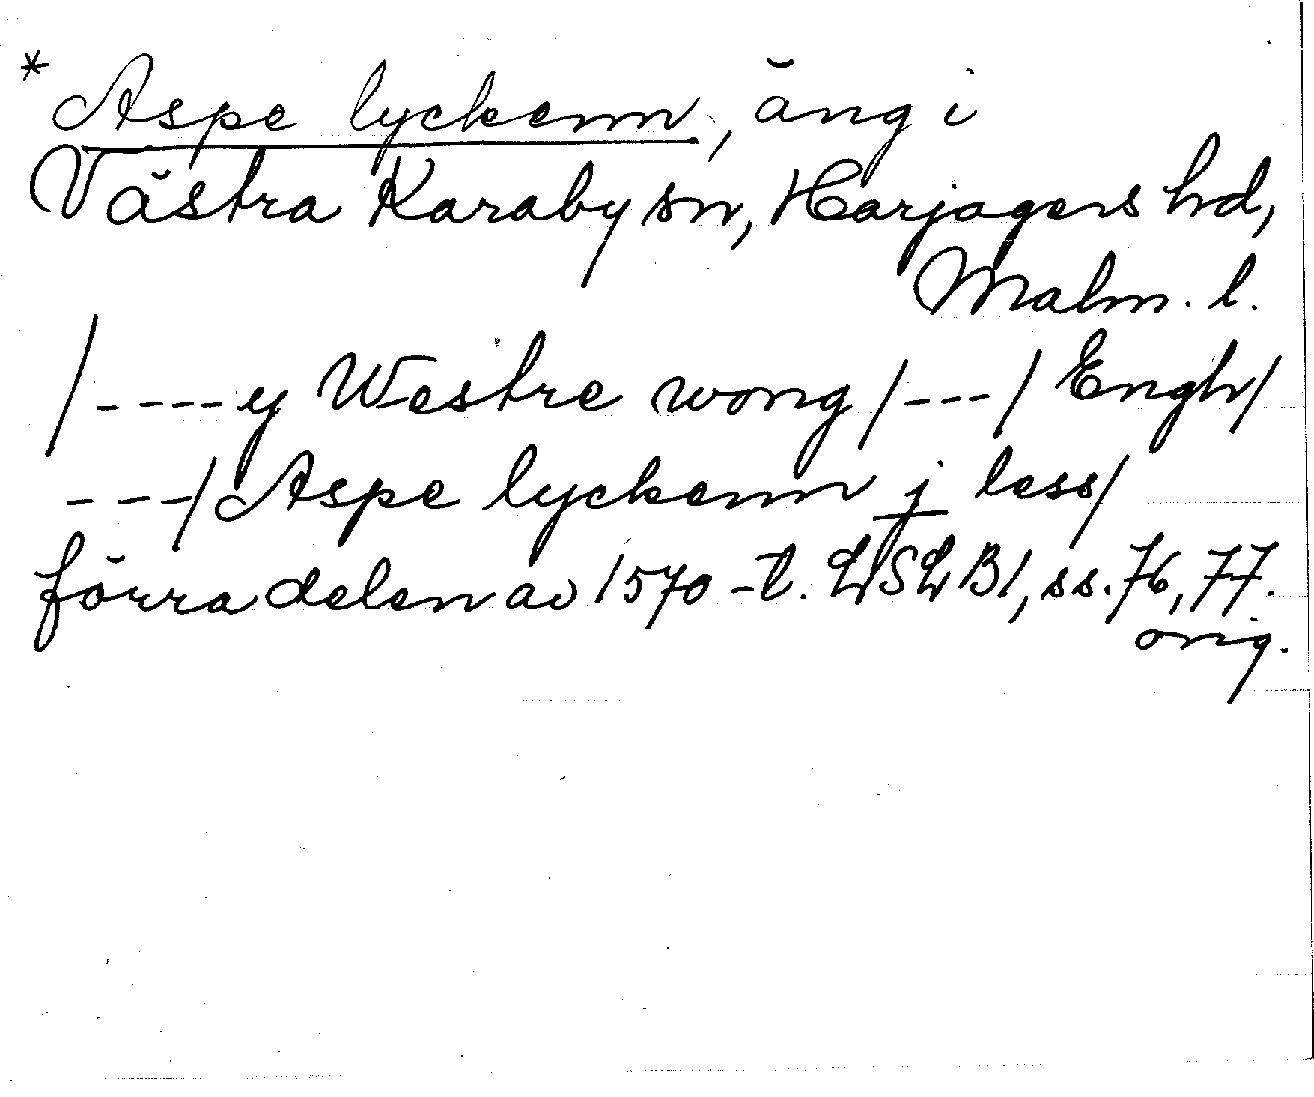 * Aspe lyckenn, äng i
Västra Karaby sn, Harjagers hd,
Malm. l.
/----y Westre wong/---/Engh/
---/Aspe lyckenn j less/
förra delen av 1570-t. LSLB1, ss. 76, 77.
orig.